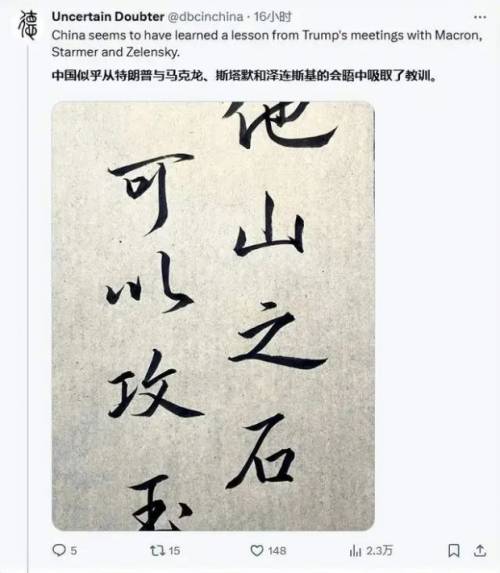 Uncertain Doubter @dbcinchina · 16小时
China seems to have learned a lesson from Trump's meetings with Macron,
Starmer and Zelensky.
中国似乎从特朗普与马克龙、斯塔默和泽连斯基的会晤中吸取了教训。
他山之石
可以攻玉
5 15 148 2.3万
德